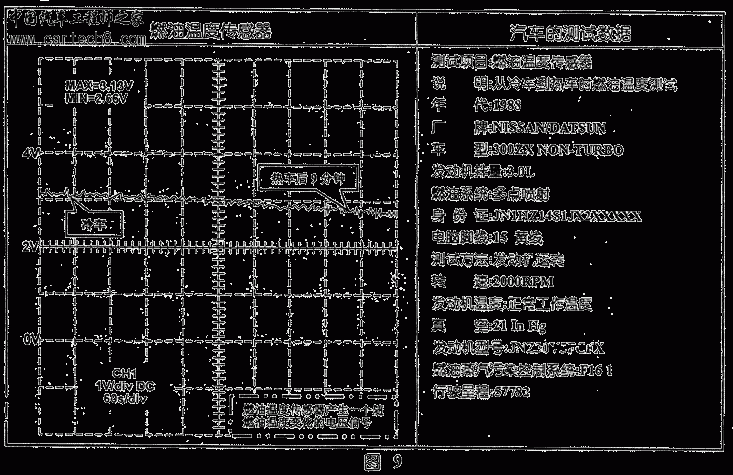 中国汽车工程师之家
www.cartech8.com
燃油温度传感器
汽车的测试数据
MAX=3.13V
MIN=2.66V
4V
热车后9分钟
冷车
2V
0V
CH1
1V/div DC
60s/div
燃油温度传感器产生一个随
燃油温度变化的电压信号
测试项目:燃油温度传感器
说 明:从冷车到热车时燃油温度测试
年 代:1988
厂 牌:NISSAN/DATSUN
车 型:300ZX NON-TURBO
发动机排量:3.0L
燃油系统:多点喷射
身 份 证:
电脑脚线:15
测试方法:发动机运转
转 速:2000RPM
发动机温度:正常工作温度
真 空:21 In Hg
发动机型号:
行驶里程:57782
图 9